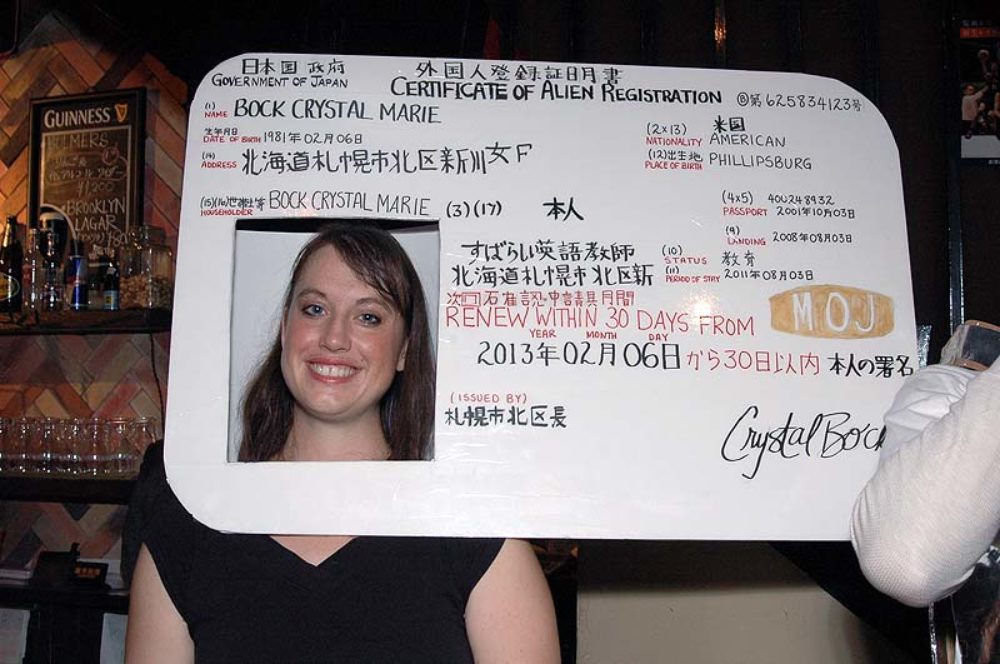 日本国政府
GOVERNMENT OF JAPAN
外国人登録証明書
CERTIFICATE OF ALIEN REGISTRATION
Ⓑ第625834123号
(1) NAME BOCK CRYSTAL MARIE
生年月日
DATE OF BIRTH 1981年02月06日
女F
(2×13) NATIONALITY 米国 AMERICAN
(12)出生地
PLACE OF BIRTH PHILLIPSBURG
(14) ADDRESS 北海道札幌市北区新川
(15)(16)世帯主等
HOUSEHOLDER BOCK CRYSTAL MARIE
(3)(17) 本人
(4×5) PASSPORT 40U248932
2001年10月03日
(9) LANDING 2008年08月03日
すばらしい英語教師
北海道札幌市北区新
(10) STATUS 教育
(11) PERIOD OF STAY 2011年08月03日
RENEW WITHIN 30 DAYS FROM
YEAR MONTH DAY
2013年02月06日から30日以内
MOJ
本人の署名
(ISSUED BY)
札幌市北区長
Crystal Bock
GUINNESS
BROOKLYN
LAGAR